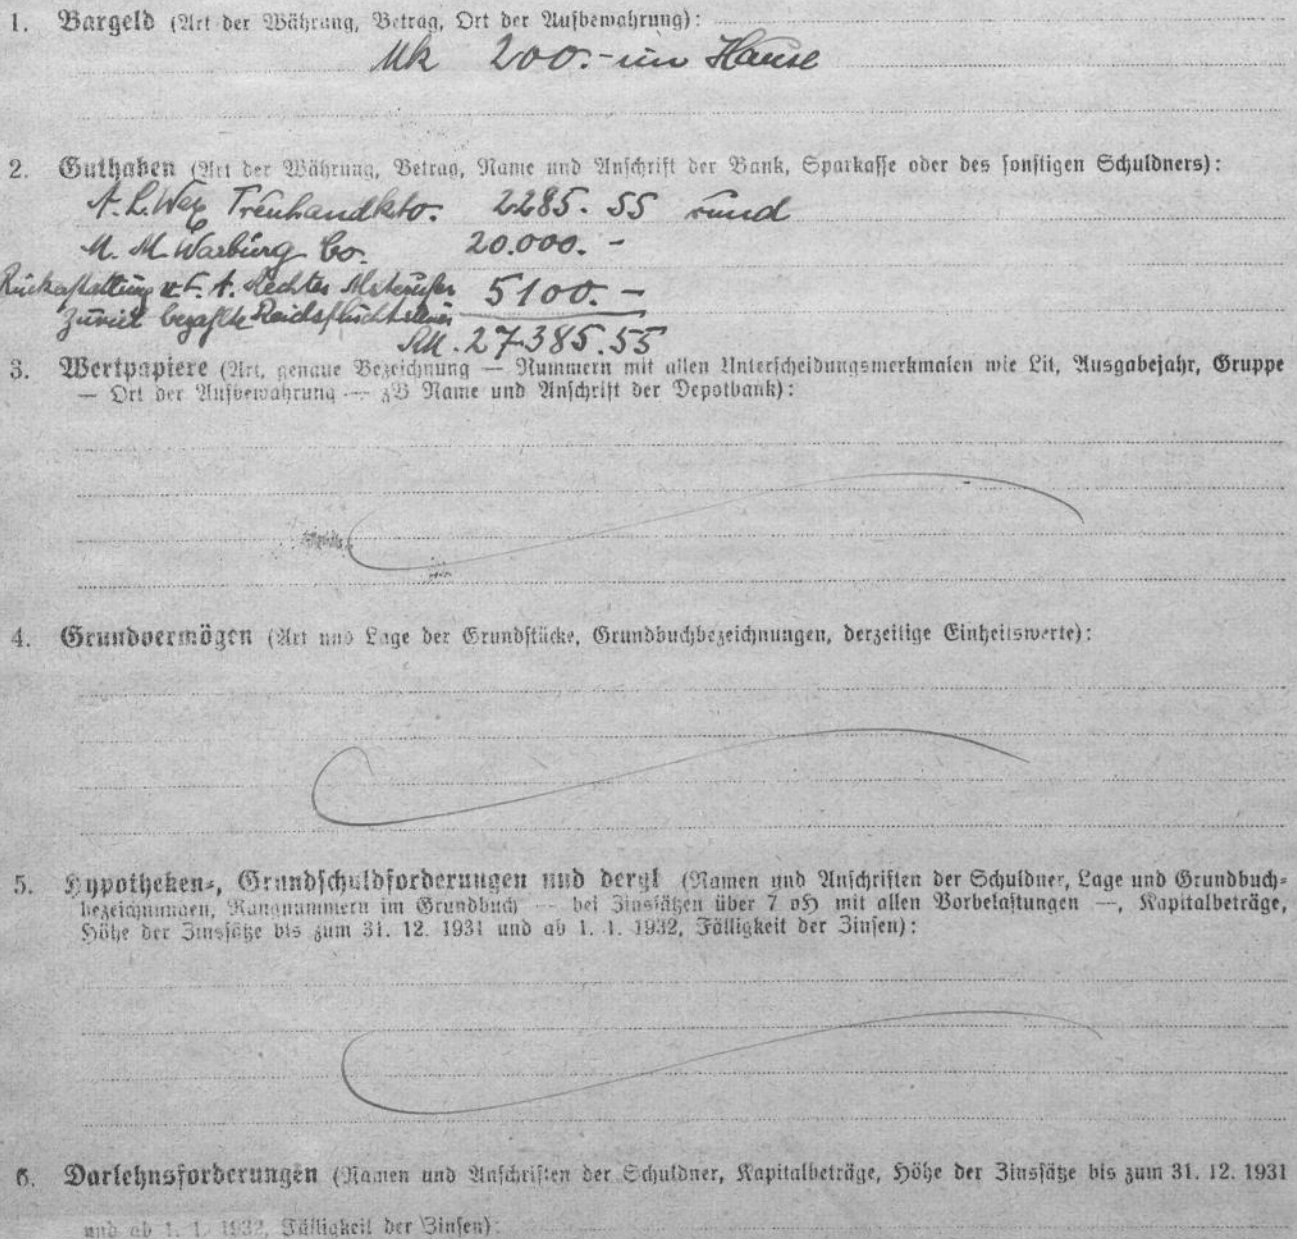 1. Bargeld (Art der Währung, Betrag, Ort der Aufbewahrung):
Mk 200.- im Hause
2. Guthaben (Art der Währung, Betrag, Name und Anschrift der Bank, Sparkasse oder des sonstigen Schuldners):
A. L. Wex Treuhandkto. 2285.55 rund
M. M. Warburg Co. 20.000.-
Rückerstattung F. A. Rechtes Alsterufer 5100.-
zuviel bezahlte Reichsfluchtsteuer
RM. 27385.55
3. Wertpapiere (Art, genaue Bezeichnung — Nummern mit allen Unterscheidungsmerkmalen wie Lit, Ausgabejahr, Gruppe
— Ort der Aufbewahrung — zB Name und Anschrift der Depotbank):
4. Grundvermögen (Art und Lage der Grundstücke, Grundbuchbezeichnungen, derzeitige Einheitswerte):
5. Hypotheken-, Grundschuldforderungen und dergl (Namen und Anschriften der Schuldner, Lage und Grundbuch-
bezeichnungen, Rangnummern im Grundbuch — bei Zinssätzen über 7 vH mit allen Vorbelastungen —, Kapitalbeträge,
Höhe der Zinssätze bis zum 31. 12. 1931 und ab 1. 1. 1932, Fälligkeit der Zinsen):
6. Darlehnsforderungen (Namen und Anschriften der Schuldner, Kapitalbeträge, Höhe der Zinssätze bis zum 31. 12. 1931
und ab 1. 1. 1932, Fälligkeit der Zinsen):